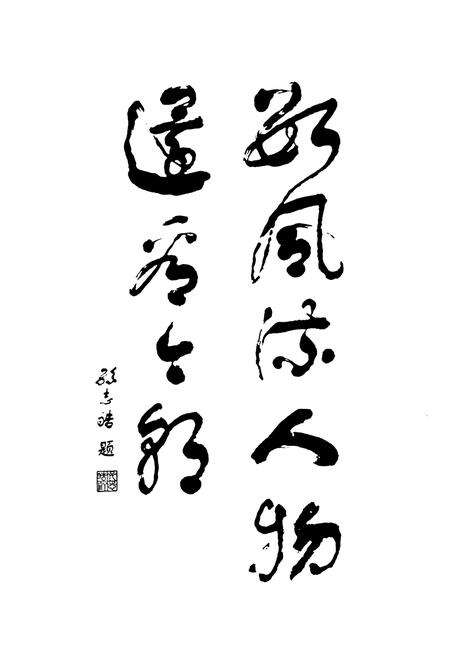 数风流人物
还看今朝
志浩题